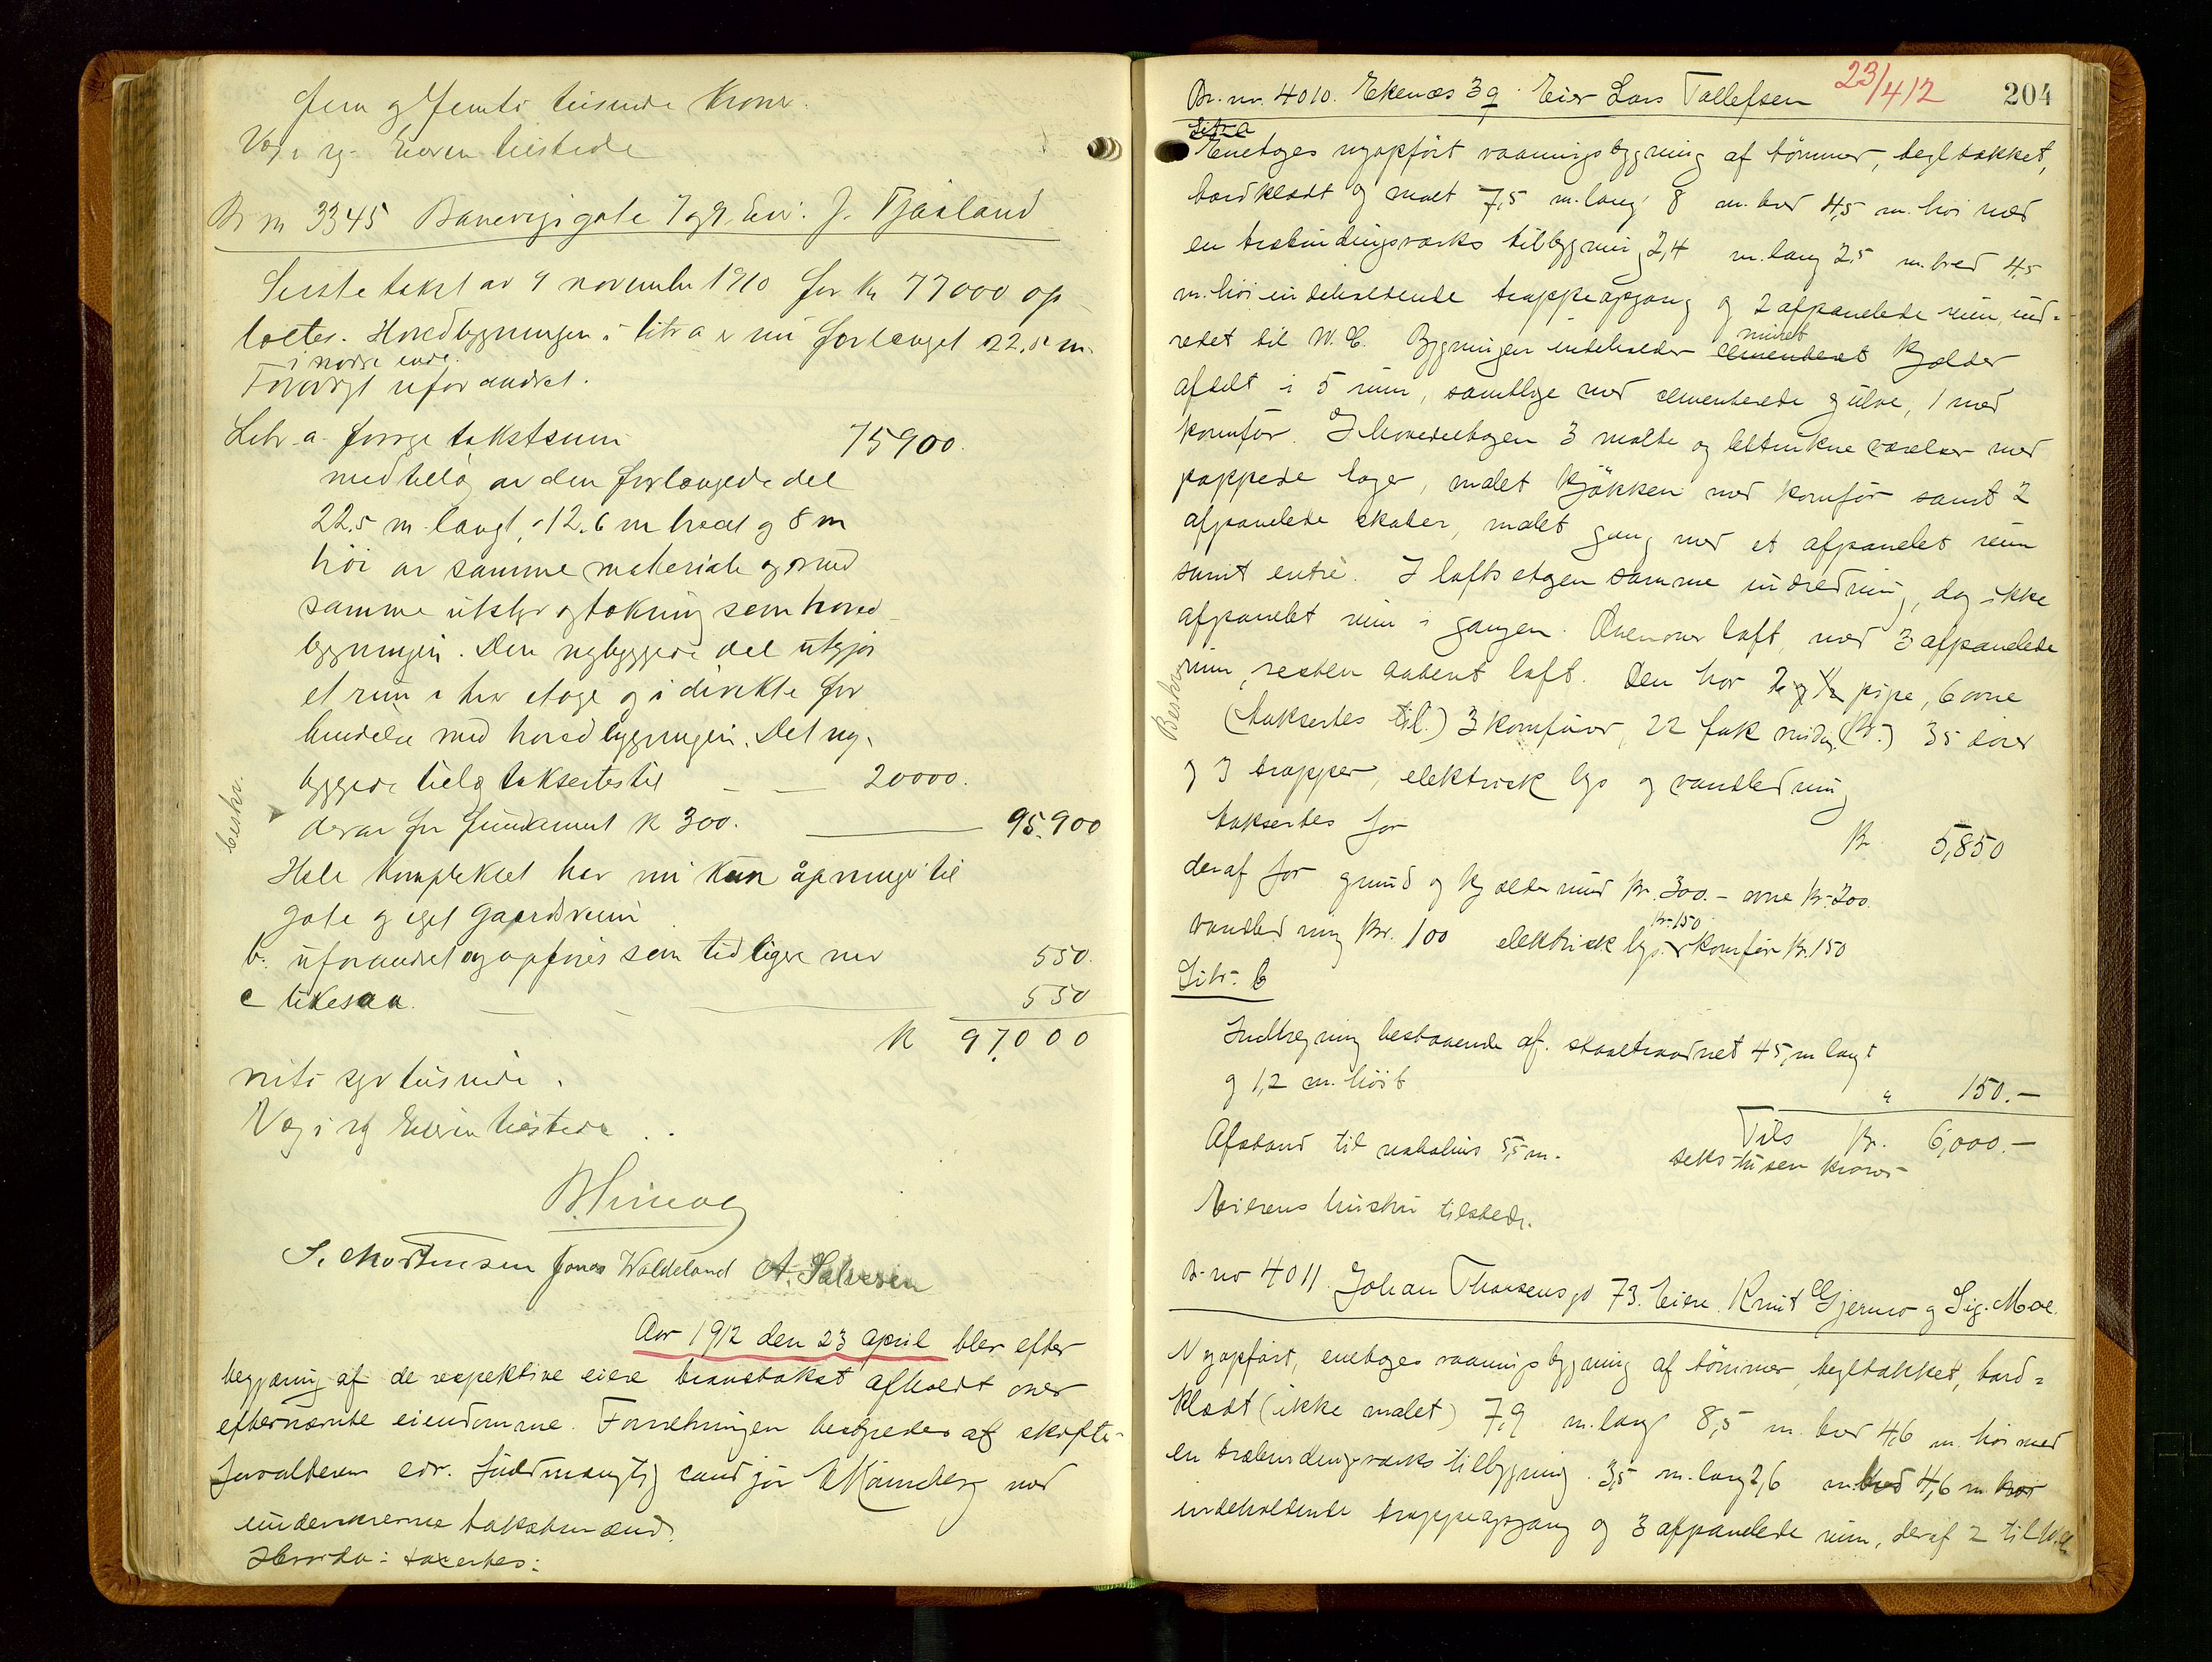 fem og femti tusinde kroner.
Vei i rg. Eieren tilstede
Br nr 3345 Banevigs gate 7 og 9. Eier: J. Tjaaland
Siste takst av 9 november 1910 for kr 77000 op
loetes. Hovedbygningen i litr a er nu forlænget 22,5 m.
i nordre ende.
Forøvrigt uforandret.
Litr a. forrige takstsum 75900.
med tillæg av den forlængede del
22.5 m langt, 12.6 m bredt og 8 m
høi av samme materiale og med
samme utstyr og tækning som hoved
bygningen. Den nybyggede del utgjør
et rum i hver etage og i direkte for
bindelse med hovedbygningen. Det ny-
byggede tillæg taksertes til — — 20000.
derav for fundament kr 300. — 95.900
beskr.
Hele komplekset har nu kun åpninger til
gate og eget gaardsrum
b. uforandret og opføres som tidligere med 550.
c likesaa. — — 550
kr 97.000
nitti syv tusinde.
Vei i rg Eieren tilstede . .
S. Mortensen Jonas Waldeland A. Salvesen
Aar 1912 den 23 april blev efter
begjæring af de respektive eiere brandtakst afholdt over
efternævnte eiendomme. Forretningen bestyredes af skifte-
forvalteren edv. fuldmægtig cand jur med
undertegnede takstmænd.
Hvorda: taxertes:
Br. nr. 4010. Ekenæs 3q. Eier Lars Tollefsen 23/4 12 204
Litr a
Enetages nyopført vaaningsbygning af tømmer, tegltækket,
bordklædt og malt 7,5 m. lang 8 m. bred 4,5 m. høi med
en træbindingsværks tilbygning 2,4 m. lang 2,5 m. bred 4,5
m. høi indeholdende trappeopgang og 2 afpanelede rum, ind-
redet til W. C. Bygningen indeholder cementeret muret kjelder
afdelt i 5 rum, samtlige med cementerede gulve, 1 med
komfør. I hovedetagen 3 malte og betrukne værelser med
pappede tager, malet kjøkken med komfør samt 2
afpanelede skaber, malet gang med et afpanelet rum
samt entre. I loftsetagen samme indredning, dog ikke
afpanelet rum i gangen. Ovenover loft, med 3 afpanelede
rum, resten aabent loft. Den har 2 og 1/2 pipe, 6 ovne
Beskr.
(taksertes til.) 3 komfører, 22 fak vinduer (kr.) 35 dører
og 3 trapper, elektrisk lys og vandledning
taksertes for kr. 5,850
deraf for grund og kjeldermur kr. 300.- ovne kr. 200.
vandledning kr. 100 elektrisk lys kr. 150 komfør kr. 150
Litr. b
Indhegning bestaaende af staaltraadnet 45, m langt
og 1,2 m. høit " 150.—
Tils kr. 6,000.—
Afstand til nabohus 5,5 m. seks tusen kroner
Eierens hustru tilstede.
Br. nr 4011. Johan Thorsens gd 73. Eiere. Knut Gjermo og Sig. Moe.
Nyopført, enetages vaaningsbygning af tømmer, tegltækket, bord-
klædt (ikke malet) 7,9 m. lang 8,5 m. bred 4,6 m. høi med
en træbindingsværks tilbygning 3,5 m. lang 2,6 m. bred 4,6 m. høi
indeholdende trappeopgang og 3 afpanelede rum, deraf 2 til W.C.